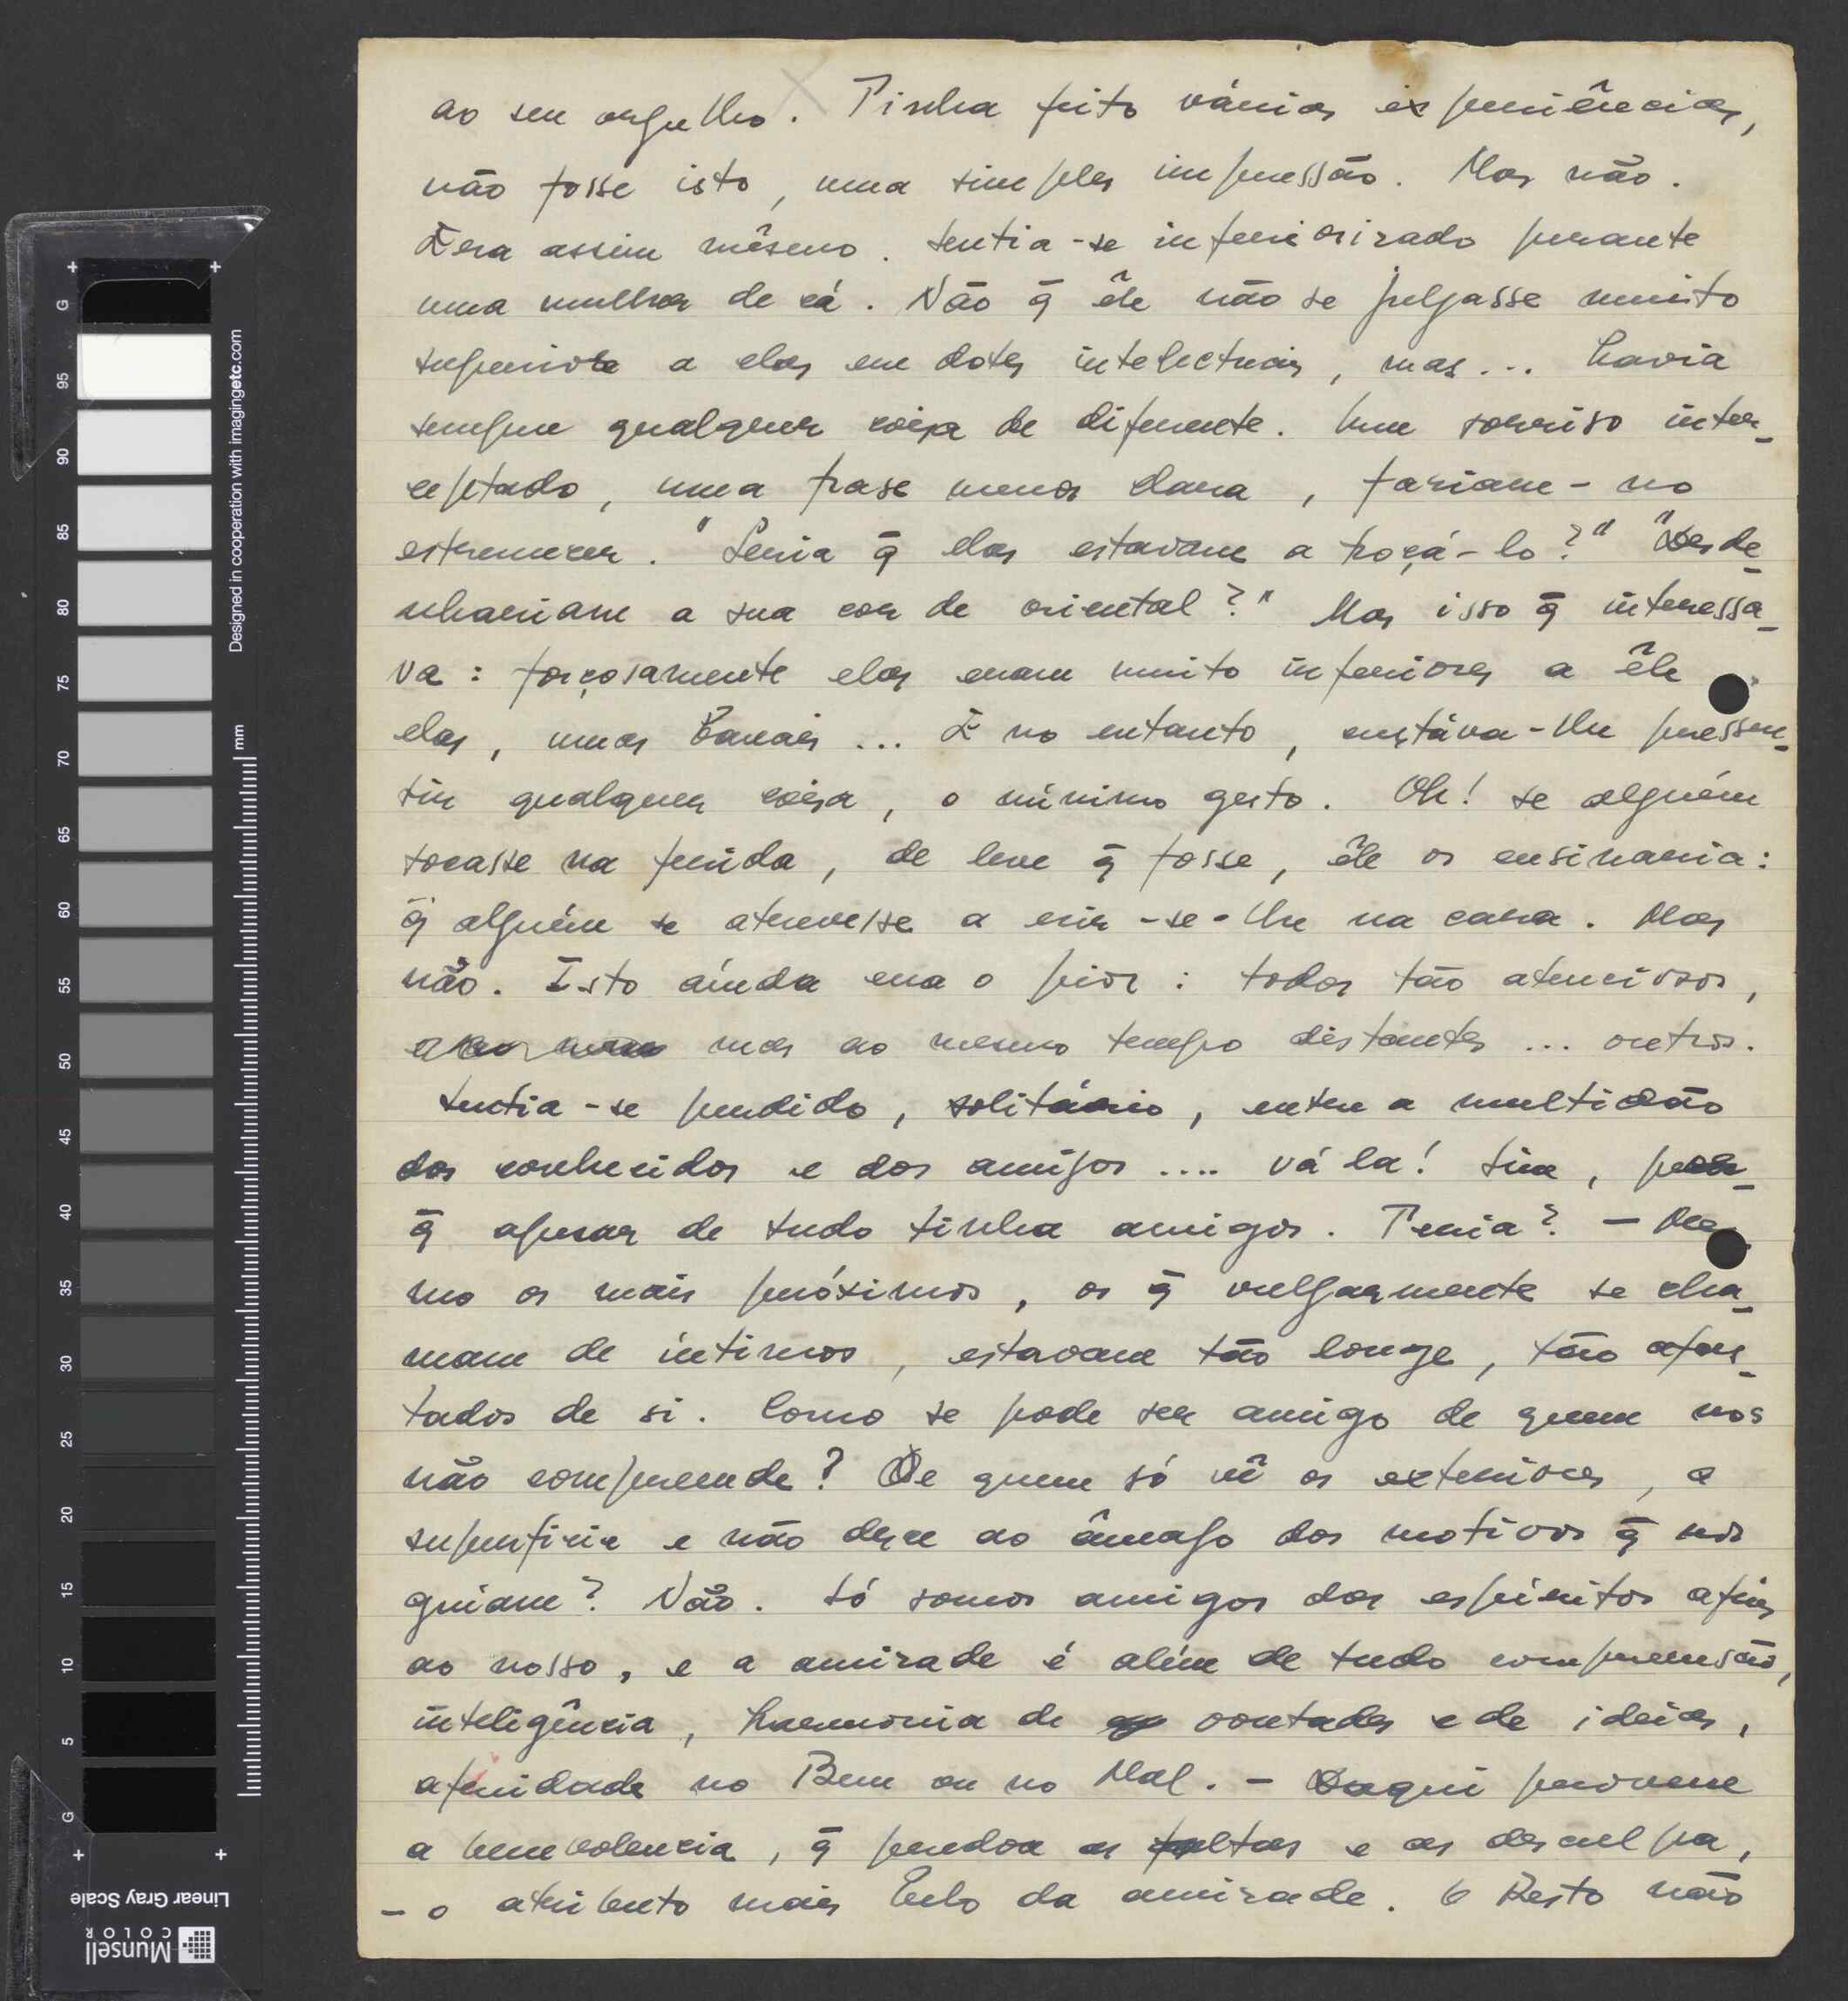 ao seu orgulho. Tinha feito várias experiências,
não fosse isto, uma simples impressão. Mas não.
Era assim mêsmo. Sentia-se inferiorizado perante
uma mulher de cá. Não q̃ êle não se julgasse muito
superior a elas em dotes intelectuais, mas... havia
sempre qualquer coisa de diferente. Um sorriso inter-
ceptado, uma frase menos clara, faziam-no
estremecer. "Seria q̃ elas estavam a troçá-lo?" "Desde-
nhariam a sua cor de oriental?" Mas isso q̃ interessa-
va: forçosamente elas eram muito inferiores a êle
elas, umas banais... E no entanto, custáva-lhe pressen-
tir qualquer coisa, o mínimo gesto. Oh! se alguém
tocasse na ferida, de leve q̃ fosse, êle os ensinaria:
q̃ alguém se atrevesse a rir-se-lhe na cara. Mas
não. Isto aínda era o pior: todos tão atenciosos,
mas ao mesmo tempo distantes... outros.
Sentia-se perdido, solitário, entre a multidão
dos conhecidos e dos amigos.... vá la! Sim, por-
q̃ apesar de tudo tinha amigos. Teria? — Mes-
mo os mais próximos, os q̃ vulgarmente se cha-
mam de íntimos, estavam tão longe, tão afas-
tados de si. Como se pode ser amigo de quem nos
não compreende? De quem só vê os exteriores, a
superfície e não desce ao âmago dos motivos q̃ nos
guiam? Não. Só somos amigos dos espíritos afins
ao nosso, e a amizade é além de tudo compreensão,
inteligência, harmonia de vontades e de ideias,
afinidade no Bem ou no Mal. - Daqui provem
a benevolencia, q̃ perdoa as faltas e as desculpa,
- o atributo mais belo da amizade. O Resto não
G 95 90 85 80 75 70 65 60 55 50 45 40 35 30 25 20 15 10 5 G
mm
Designed in cooperation with imagingetc.com
Linear Gray Scale
Munsell
COLOR